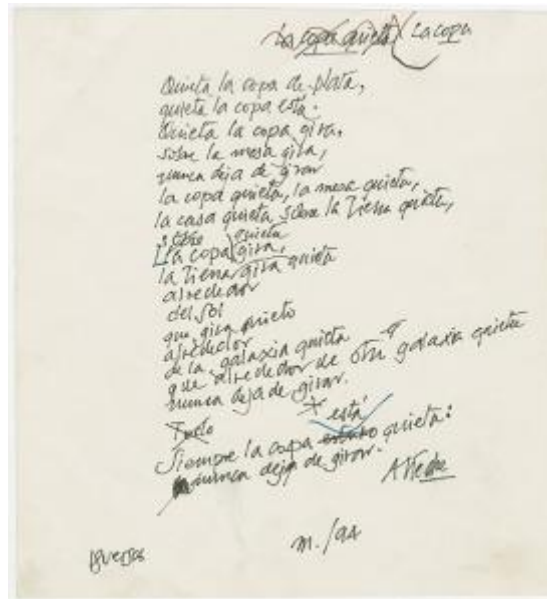 La copa quieta La copa
Quieta la copa de plata,
quieta la copa está.
Quieta la copa gira,
sobre la mesa gira,
nunca deja de girar
la copa quieta, la mesa quieta,
la casa quieta sobre la Tierra quieta,
sobre quieta
La copa gira,
la Tierra gira quieta
alrededor
del sol
que gira quieto
alrededor
de la galaxia quieta
que alrededor de otra galaxia quieta
nunca deja de girar.
Todo
está
Siempre la copa estuvo quieta:
nunca deja de girar.
m./94